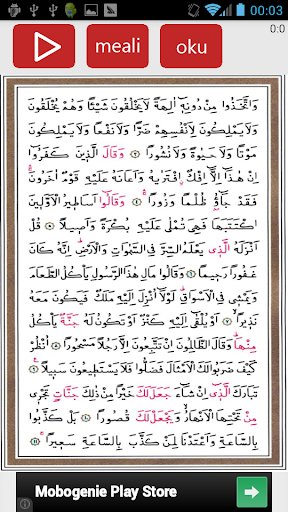 00:03
0:0
meali
oku
وَاتَّخَذُوا مِنْ دُونِهِٓ اٰلِهَةً لَا يَخْلُقُونَ شَيْـًٔا وَهُمْ يُخْلَقُونَ
وَلَا يَمْلِكُونَ لِاَنْفُسِهِمْ ضَرًّا وَلَا نَفْعًا وَلَا يَمْلِكُونَ
مَوْتًا وَلَا حَيٰوةً وَلَا نُشُورًا ﴿٣﴾ وَقَالَ الَّذِينَ كَفَرُٓوا
اِنْ هٰذَٓا اِلَّٓا اِفْكٌ افْتَرٰيهُ وَاَعَانَهُ عَلَيْهِ قَوْمٌ اٰخَرُونَ
فَقَدْ جَٓاؤُ۫ ظُلْمًا وَزُورًا ﴿٤﴾ وَقَالُٓوا اَسَاطِيرُ الْاَوَّلِينَ
اكْتَتَبَهَا فَهِيَ تُمْلٰى عَلَيْهِ بُكْرَةً وَاَصِيلًا ﴿٥﴾ قُلْ
اَنْزَلَهُ الَّذِي يَعْلَمُ السِّرَّ فِي السَّمٰوَاتِ وَالْاَرْضِ اِنَّهُ كَانَ
غَفُورًا رَحِيمًا ﴿٦﴾ وَقَالُوا مَالِ هٰذَا الرَّسُولِ يَأْكُلُ الطَّعَامَ
وَيَمْشِي فِي الْاَسْوَاقِ لَوْلَٓا اُنْزِلَ اِلَيْهِ مَلَكٌ فَيَكُونَ مَعَهُ
نَذِيرًا ﴿٧﴾ اَوْ يُلْقٰٓى اِلَيْهِ كَنْزٌ اَوْ تَكُونُ لَهُ جَنَّةٌ يَأْكُلُ
مِنْهَا وَقَالَ الظَّالِمُونَ اِنْ تَتَّبِعُونَ اِلَّا رَجُلًا مَسْحُورًا ﴿٨﴾ اُنْظُرْ
كَيْفَ ضَرَبُوا لَكَ الْاَمْثَالَ فَضَلُّوا فَلَا يَسْتَطِيعُونَ سَبِيلًا ﴿٩﴾
تَبَارَكَ الَّذِٓي اِنْ شَٓاءَ جَعَلَ لَكَ خَيْرًا مِنْ ذٰلِكَ جَنَّاتٍ تَجْرِي
مِنْ تَحْتِهَا الْاَنْهَارُ وَيَجْعَلْ لَكَ قُصُورًا ﴿١٠﴾ بَلْ كَذَّبُوا
بِالسَّاعَةِ وَاَعْتَدْنَا لِمَنْ كَذَّبَ بِالسَّاعَةِ سَعِيرًا ﴿١١﴾
Mobogenie Play Store